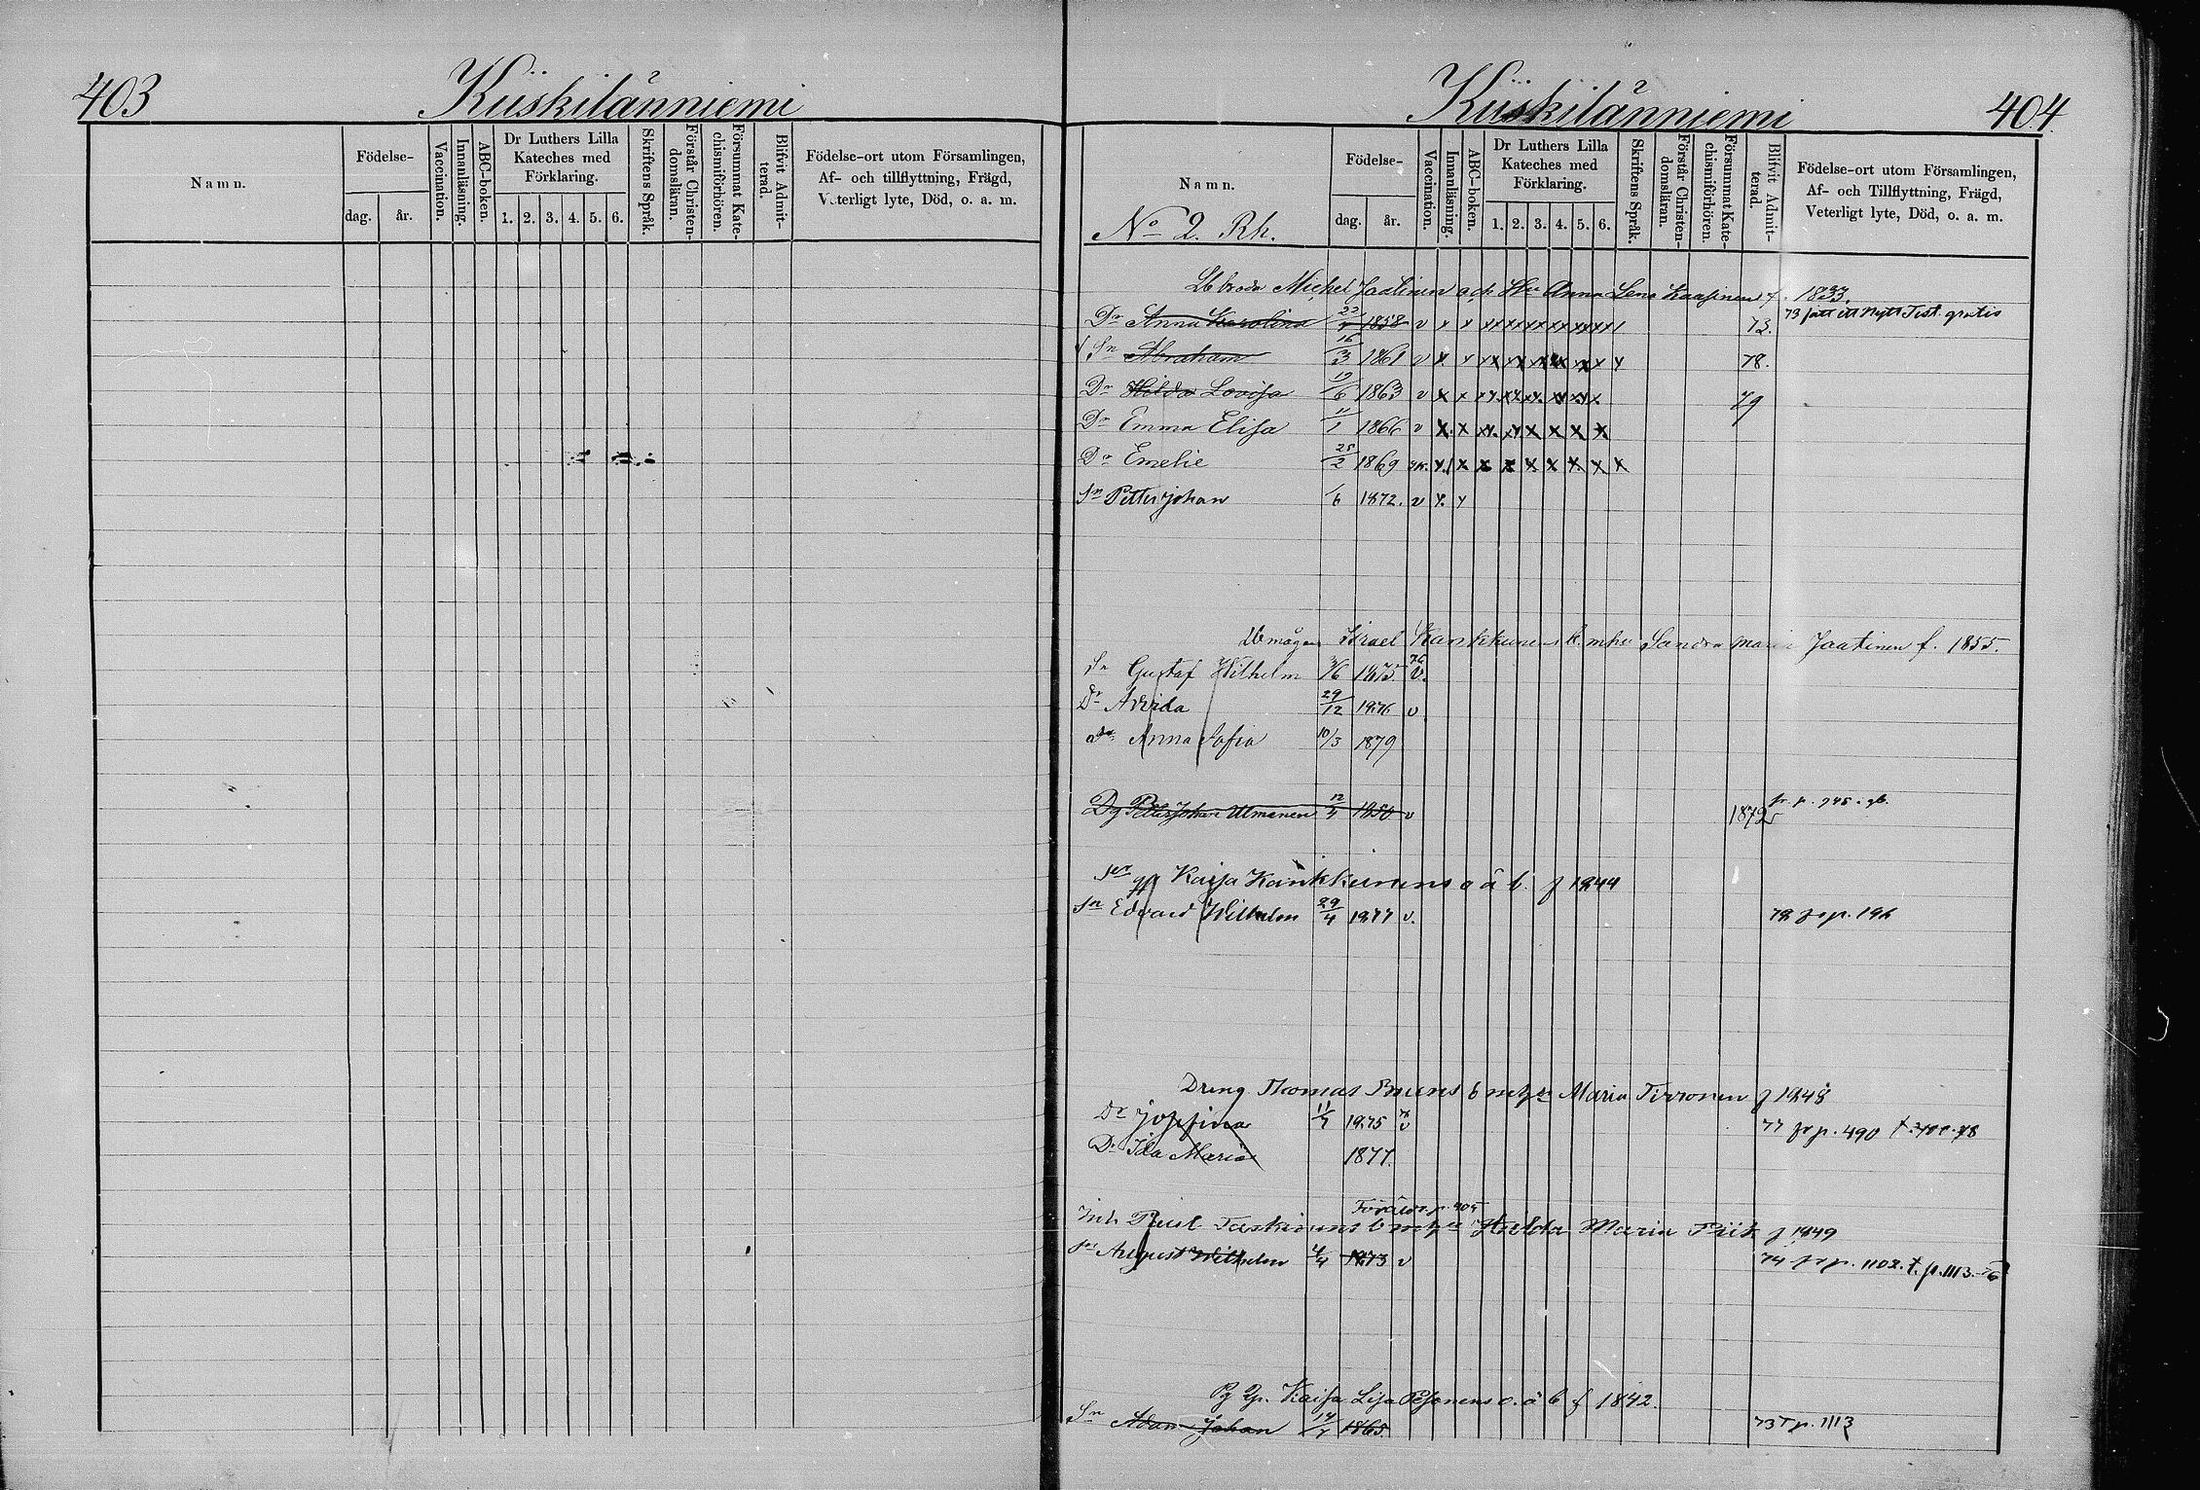 403 Kiiskilänniemi
Namn.
Födelse-
dag. år.
Vaccination.
Innanläsning.
ABC-boken.
Dr Luthers Lilla
Kateches med
Förklaring.
1. 2. 3. 4. 5. 6.
Skriftens Språk.
Förstår Christen-
domsläran.
Försummat Kate-
chismiförhören.
Blifvit Admit-
terad.
Födelse-ort utom Församlingen,
Af- och tillflyttning, Frägd,
Veterligt lyte, Död, o. a. m.
Kiiskilänniemi 404.
Namn.
No 2. Rh.
Födelse-
dag. år.
Vaccination.
Innanläsning.
ABC-boken.
Dr Luthers Lilla
Kateches med
Förklaring.
1. 2. 3. 4. 5. 6.
Skriftens Språk.
Förstår Christen-
domsläran.
Försummat Kate-
chismiförhören.
Blifvit Admit-
terad.
Födelse-ort utom Församlingen,
Af- och Tillflyttning, Frägd,
Veterligt lyte, Död, o. a. m.
Michel Jaatinen och Hu Anna Lena f. 1833.
Dr Anna Karolina 1858 v x x xx xx xx xx xx xx 73. 73 fått ett Nytt Test. gratis
Sn Abraham 16/3 1861 v x x xx xx xx xx xx x x 78.
Dr Hilda Lovisa 19/6 1863 v x x xx xx xx xx xx x 79
Dr Emma Elisa 11/1 1866 v x x xx xx x x x x
Dr Emelie 25/2 1869 x x x x x x x x x
Sn Petter Johan /6 1872. v x x
Israel Kankkunen Sandra Maria Jaatinen f. 1855.
Sn Gustaf Wilhelm /6 1875 76 v.
Dr Arvida 29/12 1876 v
Dr Anna Sofia 10/3 1879
Dg Petter Johan Ulmanen 12/ 1850 v 1872 fr. p. 945
Kaisa Kankkunens o ä b. f 1844
Sn Edvard Wilhelm 29/4 1877 v. 78 fr p. 196
Dreng Thomas b m hu Maria Tirronen f 1848
Dr Josefina 11/ 1875 v 77 fr p. 490
Dr Ida Maria 1877.
Föräldr. p. 405
Inh Taskinens b m hu Hulda Maria Piik f 1849
Sn August Wilhelm 4/4 1873 v 74 fr p. 1102. t. p. 1113. 76
Kaisa Lisa Pesonens o. ä b f 1842.
Sn Adam Johan 14/ 1865. 73 p. 1113